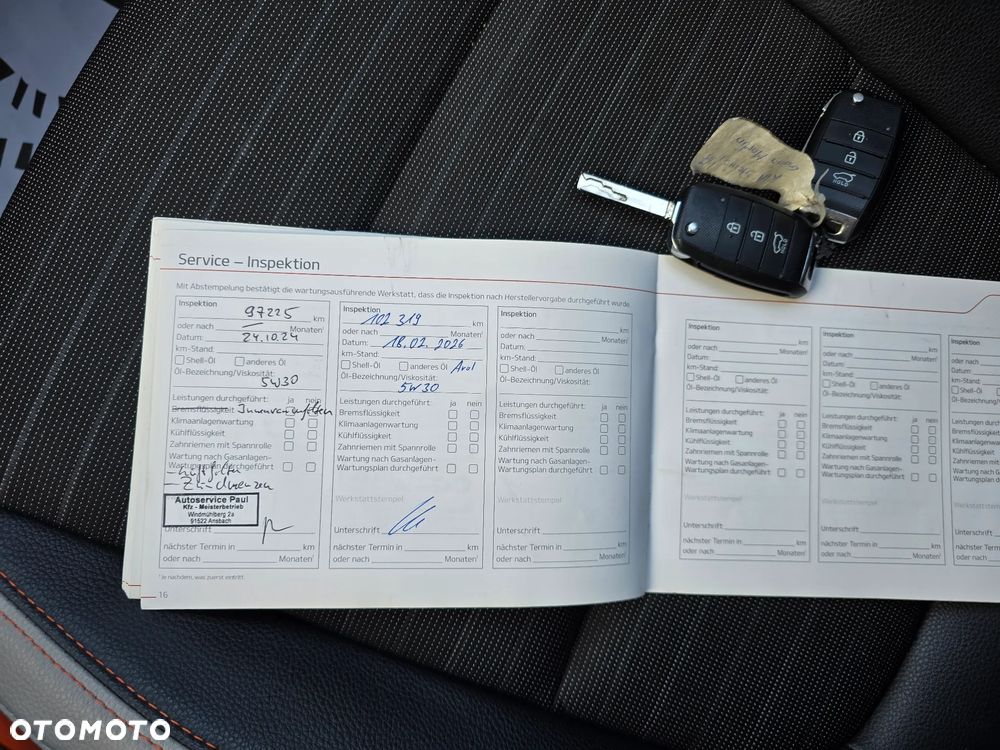 Service – Inspektion
Mit Abstempelung bestätigt die wartungsausführende Werkstatt, dass die Inspektion nach Herstellervorgabe durchgeführt wurde.
Inspektion
97225 km
oder nach Monaten¹
Datum: 24.10.24
km-Stand:
Shell-Öl anderes Öl
Öl-Bezeichnung/Viskosität:
5W30
Leistungen durchgeführt: ja nein
Bremsflüssigkeit
Klimaanlagenwartung
Kühlflüssigkeit
Zahnriemen mit Spannrolle
Wartung nach Gasanlagen-
Wartungsplan durchgeführt
Autoservice Paul
Kfz - Meisterbetrieb
Windmühlberg 2a
91522 Ansbach
Unterschrift
nächster Termin in km
oder nach Monaten¹
Inspektion
102 319 km
oder nach Monaten¹
Datum: 18.02.2026
km-Stand:
Shell-Öl anderes Öl Aral
Öl-Bezeichnung/Viskosität:
5W30
Leistungen durchgeführt: ja nein
Bremsflüssigkeit
Klimaanlagenwartung
Kühlflüssigkeit
Zahnriemen mit Spannrolle
Wartung nach Gasanlagen-
Wartungsplan durchgeführt
Werkstattstempel
Unterschrift
nächster Termin in km
oder nach Monaten¹
Inspektion
km
oder nach Monaten¹
Datum:
km-Stand:
Shell-Öl anderes Öl
Öl-Bezeichnung/Viskosität:
Leistungen durchgeführt: ja nein
Bremsflüssigkeit
Klimaanlagenwartung
Kühlflüssigkeit
Zahnriemen mit Spannrolle
Wartung nach Gasanlagen-
Wartungsplan durchgeführt
Werkstattstempel
Unterschrift
nächster Termin in km
oder nach Monaten¹
¹ Je nachdem, was zuerst eintritt.
16
Inspektion
km
oder nach Monaten¹
Datum:
km-Stand:
Shell-Öl anderes Öl
Öl-Bezeichnung/Viskosität:
Leistungen durchgeführt: ja nein
Bremsflüssigkeit
Klimaanlagenwartung
Kühlflüssigkeit
Zahnriemen mit Spannrolle
Wartung nach Gasanlagen-
Wartungsplan durchgeführt
Werkstattstempel
Unterschrift
nächster Termin in km
oder nach Monaten¹
Inspektion
km
oder nach Monaten¹
Datum:
km-Stand:
Shell-Öl anderes Öl
Öl-Bezeichnung/Viskosität:
Leistungen durchgeführt: ja nein
Bremsflüssigkeit
Klimaanlagenwartung
Kühlflüssigkeit
Zahnriemen mit Spannrolle
Wartung nach Gasanlagen-
Wartungsplan durchgeführt
Werkstattstempel
Unterschrift
nächster Termin in km
oder nach Monaten¹
Inspektion
oder nach
Datum:
km-Stand:
Shell-Öl
Öl-Bezeichnung/
Leistungen durchge
Bremsflüssigkeit
Klimaanlagenwartung
Kühlflüssigkeit
Zahnriemen mit Spann
Wartung nach Gasanla
Wartungsplan durchge
Werkstattstempel
Unterschrift
nächster Termin in
oder nach
HOLD
HOLD
OTOMOTO